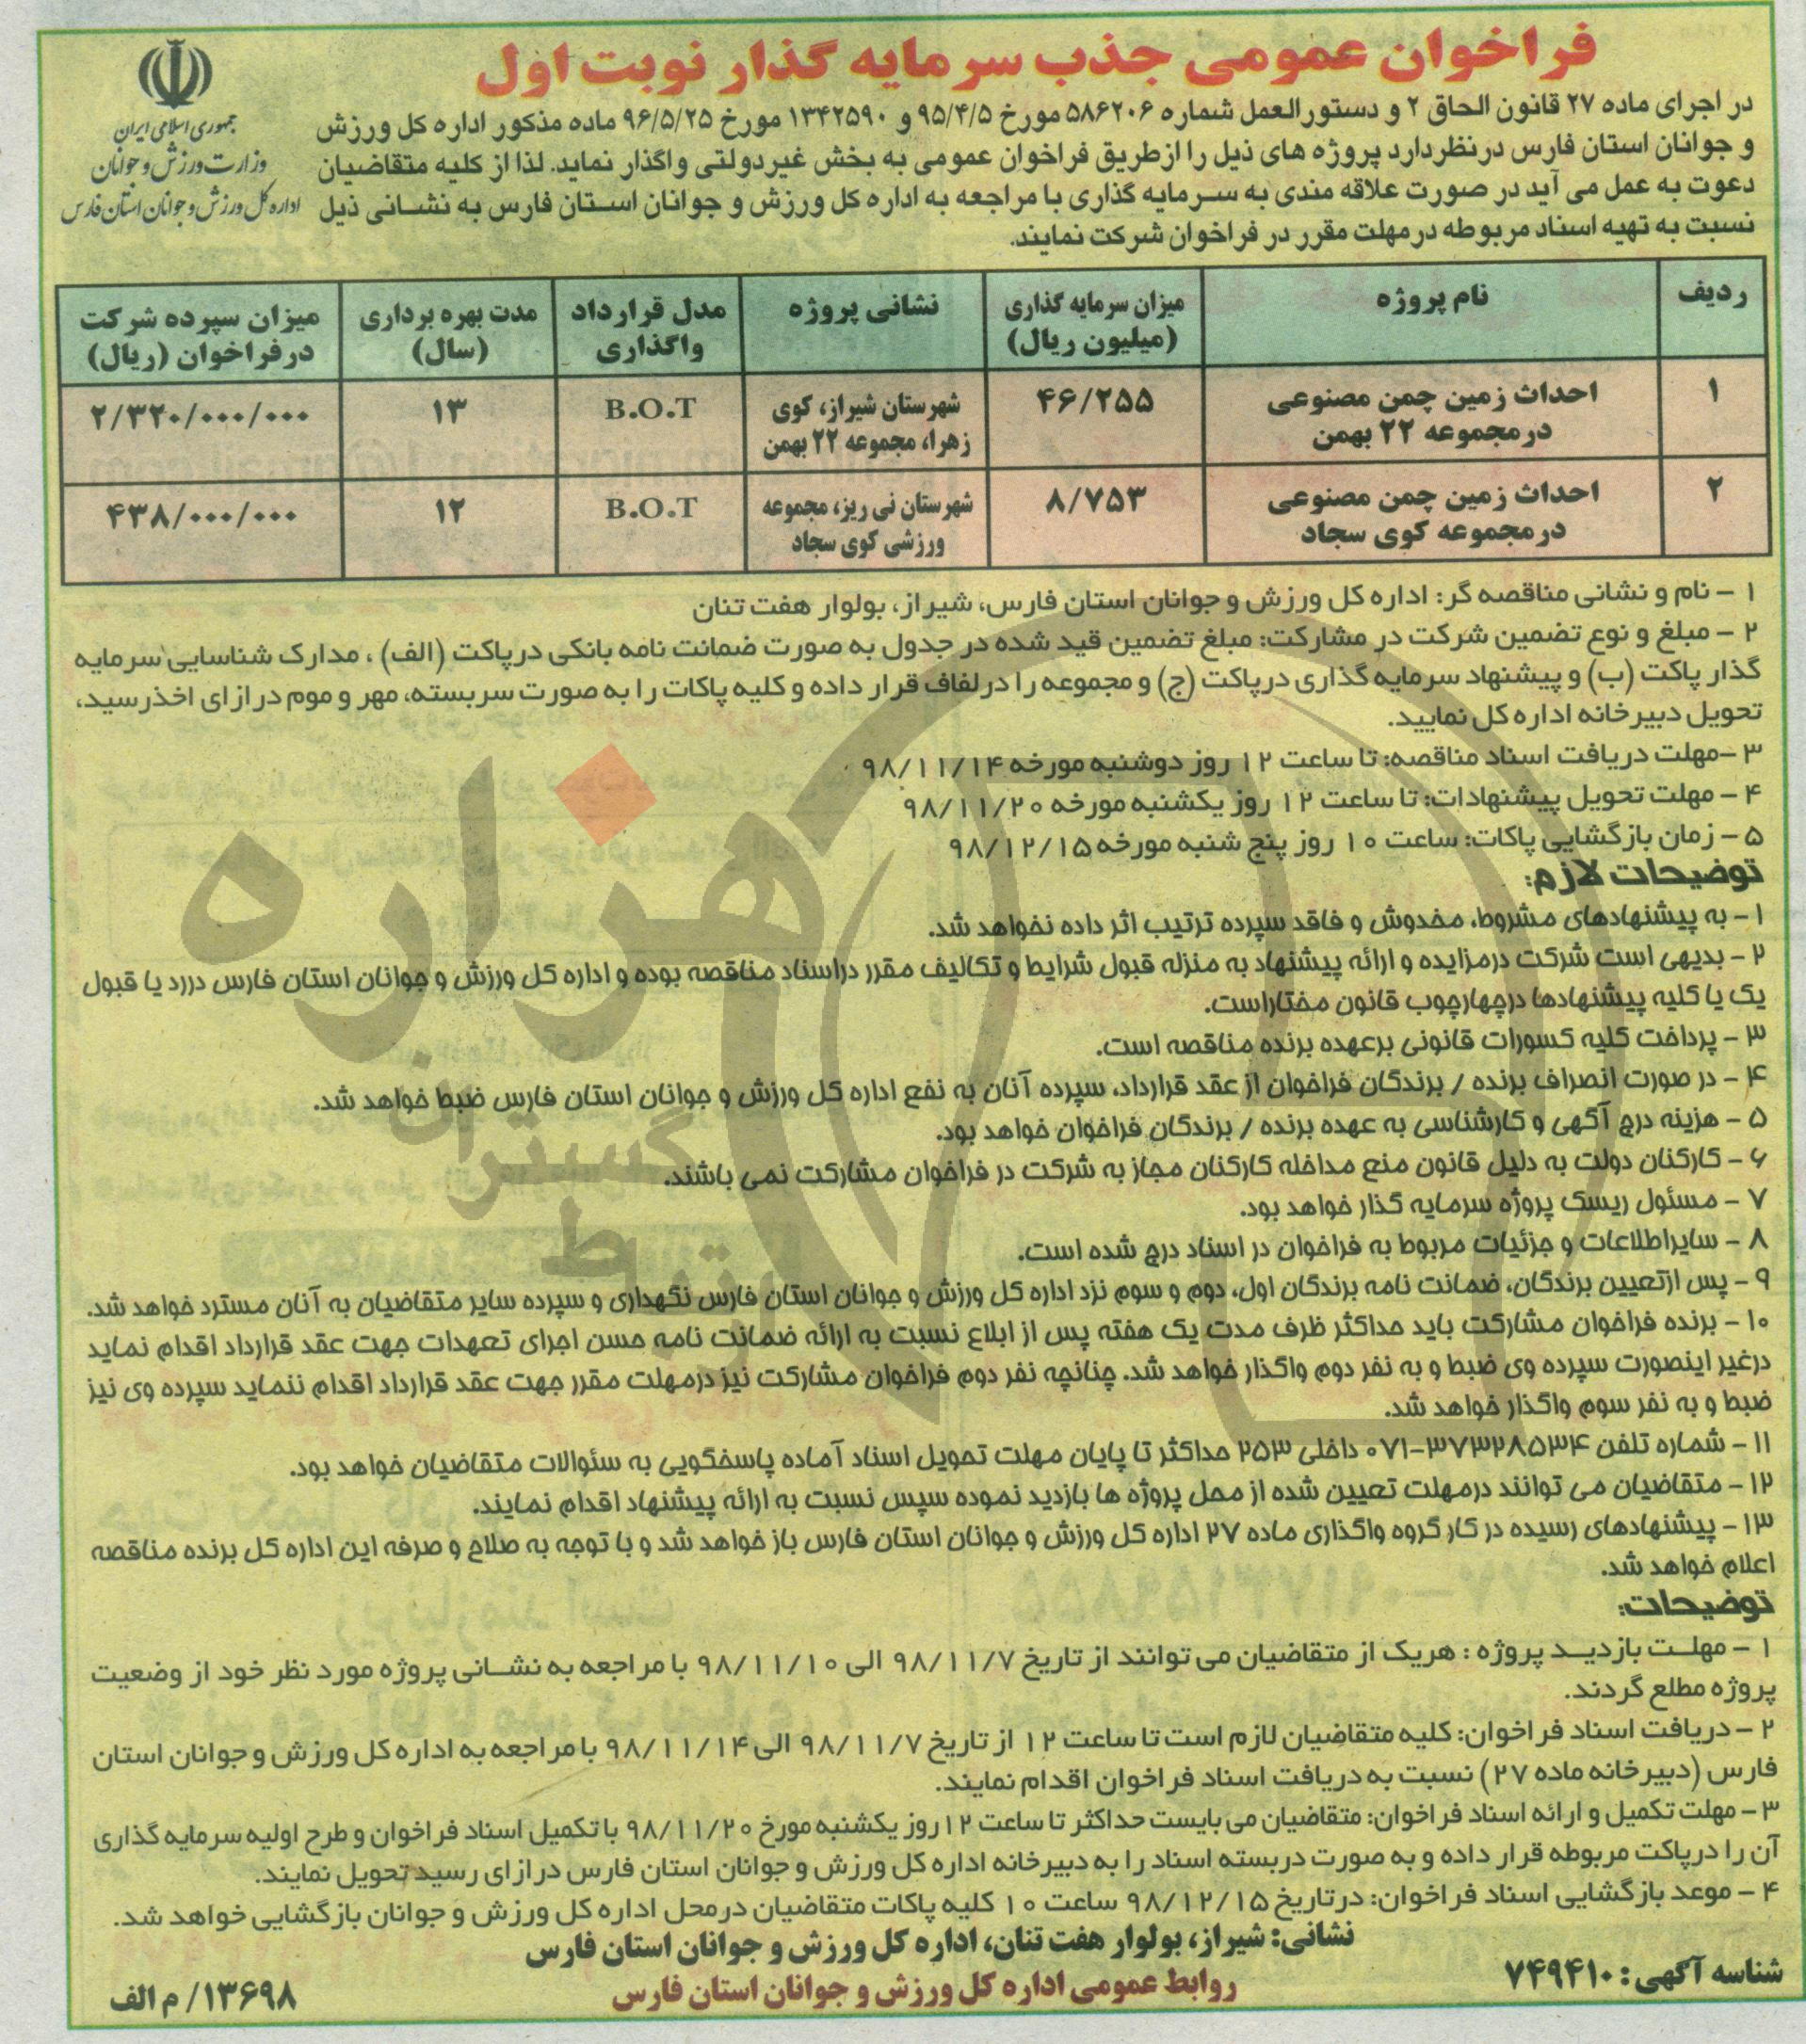 فراخوان عمومی جذب سرمایه گذار نوبت اول
جمهوری اسلامی ایران
وزارت ورزش و جوانان
اداره کل ورزش و جوانان استان فارس
در اجرای ماده ۲۷ قانون الحاق ۲ و دستورالعمل شماره ۵۸۶۲۰۶ مورخ ۹۵/۴/۵ و ۱۳۴۲۵۹۰ مورخ ۹۶/۵/۲۵ ماده مذکور اداره کل ورزش
و جوانان استان فارس درنظردارد پروژه های ذیل را ازطریق فراخوان عمومی به بخش غیردولتی واگذار نماید. لذا از کلیه متقاضیان
دعوت به عمل می آید در صورت علاقه مندی به سرمایه گذاری با مراجعه به اداره کل ورزش و جوانان استان فارس به نشانی ذیل
نسبت به تهیه اسناد مربوطه درمهلت مقرر در فراخوان شرکت نمایند.
ردیف نام پروژه میزان سرمایه گذاری (میلیون ریال) نشانی پروژه مدل قرارداد واگذاری مدت بهره برداری (سال) میزان سپرده شرکت درفراخوان (ریال)
۱ احداث زمین چمن مصنوعی درمجموعه ۲۲ بهمن ۴۶/۲۵۵ شهرستان شیراز، کوی زهرا، مجموعه ۲۲ بهمن B.O.T ۱۳ ۲/۳۲۰/۰۰۰/۰۰۰
۲ احداث زمین چمن مصنوعی درمجموعه کوی سجاد ۸/۷۵۳ شهرستان نی ریز، مجموعه ورزشی کوی سجاد B.O.T ۱۲ ۴۳۸/۰۰۰/۰۰۰
۱ – نام و نشانی مناقصه گر: اداره کل ورزش و جوانان استان فارس، شیراز، بولوار هفت تنان
۲ – مبلغ و نوع تضمین شرکت در مشارکت: مبلغ تضمین قید شده در جدول به صورت ضمانت نامه بانکی درپاکت (الف) ، مدارک شناسایی سرمایه
گذار پاکت (ب) و پیشنهاد سرمایه گذاری درپاکت (ج) و مجموعه را درلفاف قرار داده و کلیه پاکات را به صورت سربسته، مهر و موم درازای اخذرسید،
تحویل دبیرخانه اداره کل نمایید.
۳ –مهلت دریافت اسناد مناقصه: تا ساعت ۱۲ روز دوشنبه مورخه ۹۸/۱۱/۱۴
۴ – مهلت تحویل پیشنهادات: تا ساعت ۱۲ روز یکشنبه مورخه ۹۸/۱۱/۲۰
۵ – زمان بازگشایی پاکات: ساعت ۱۰ روز پنج شنبه مورخه ۹۸/۱۲/۱۵
توضیحات لازم:
۱– به پیشنهادهای مشروط، مخدوش و فاقد سپرده ترتیب اثر داده نخواهد شد.
۲ – بدیهی است شرکت درمزایده و ارائه پیشنهاد به منزله قبول شرایط و تکالیف مقرر دراسناد مناقصه بوده و اداره کل ورزش و جوانان استان فارس دررد یا قبول
یک یا کلیه پیشنهادها درچهارچوب قانون مختاراست.
۳ – پرداخت کلیه کسورات قانونی برعهده برنده مناقصه است.
۴ – در صورت انصراف برنده / برندگان فراخوان از عقد قرارداد، سپرده آنان به نفع اداره کل ورزش و جوانان استان فارس ضبط خواهد شد.
۵ – هزینه درج آگهی و کارشناسی به عهده برنده / برندگان فراخوان خواهد بود.
۶ – کارکنان دولت به دلیل قانون منع مداخله کارکنان مجاز به شرکت در فراخوان مشارکت نمی باشند.
۷ – مسئول ریسک پروژه سرمایه گذار خواهد بود.
۸ – سایراطلاعات و جزئیات مربوط به فراخوان در اسناد درج شده است.
۹ – پس ازتعیین برندگان، ضمانت نامه برندگان اول، دوم و سوم نزد اداره کل ورزش و جوانان استان فارس نگهداری و سپرده سایر متقاضیان به آنان مسترد خواهد شد.
۱۰ – برنده فراخوان مشارکت باید حداکثر ظرف مدت یک هفته پس از ابلاغ نسبت به ارائه ضمانت نامه حسن اجرای تعهدات جهت عقد قرارداد اقدام نماید
درغیر اینصورت سپرده وی ضبط و به نفر دوم واگذار خواهد شد. چنانچه نفر دوم فراخوان مشارکت نیز درمهلت مقرر جهت عقد قرارداد اقدام ننماید سپرده وی نیز
ضبط و به نفر سوم واگذار خواهد شد.
۱۱ – شماره تلفن ۳۷۳۲۸۵۳۴-۰۷۱ داخلی ۲۵۳ حداکثر تا پایان مهلت تحویل اسناد آماده پاسخگویی به سئوالات متقاضیان خواهد بود.
۱۲ – متقاضیان می توانند درمهلت تعیین شده از محل پروژه ها بازدید نموده سپس نسبت به ارائه پیشنهاد اقدام نمایند.
۱۳ – پیشنهادهای رسیده در کار گروه واگذاری ماده ۲۷ اداره کل ورزش و جوانان استان فارس باز خواهد شد و با توجه به صلاح و صرفه این اداره کل برنده مناقصه
اعلام خواهد شد.
توضیحات:
۱ – مهلت بازدید پروژه : هریک از متقاضیان می توانند از تاریخ ۹۸/۱۱/۷ الی ۹۸/۱۱/۱۰ با مراجعه به نشانی پروژه مورد نظر خود از وضعیت
پروژه مطلع گردند.
۲ – دریافت اسناد فراخوان: کلیه متقاضیان لازم است تا ساعت ۱۲ از تاریخ ۹۸/۱۱/۷ الی ۹۸/۱۱/۱۴ با مراجعه به اداره کل ورزش و جوانان استان
فارس (دبیرخانه ماده ۲۷) نسبت به دریافت اسناد فراخوان اقدام نمایند.
۳ – مهلت تکمیل و ارائه اسناد فراخوان: متقاضیان می بایست حداکثر تا ساعت ۱۲ روز یکشنبه مورخ ۹۸/۱۱/۲۰ با تکمیل اسناد فراخوان و طرح اولیه سرمایه گذاری
آن را درپاکت مربوطه قرار داده و به صورت دربسته اسناد را به دبیرخانه اداره کل ورزش و جوانان استان فارس درازای رسید تحویل نمایند.
۴ – موعد بازگشایی اسناد فراخوان: درتاریخ ۹۸/۱۲/۱۵ ساعت ۱۰ کلیه پاکات متقاضیان درمحل اداره کل ورزش و جوانان بازگشایی خواهد شد.
نشانی: شیراز، بولوار هفت تنان، اداره کل ورزش و جوانان استان فارس
شناسه آگهی: ۷۴۹۴۱۰
روابط عمومی اداره کل ورزش و جوانان استان فارس
۱۳۶۹۸/ م الف
هزاره
گستران